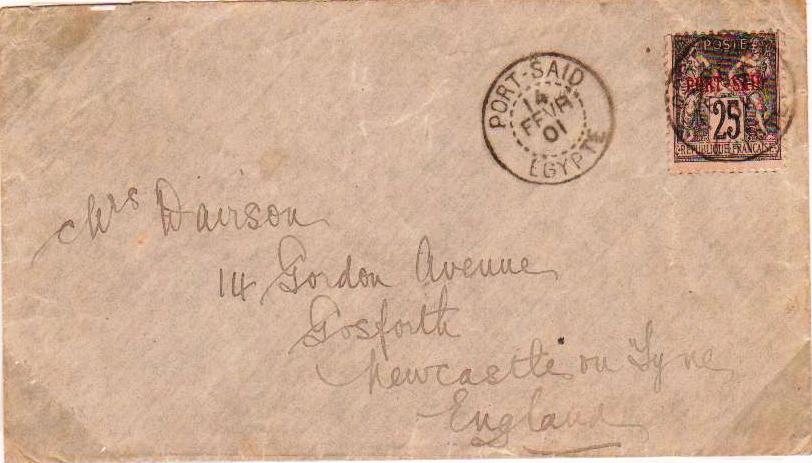 PORT-SAID
14
FEVR
01
EGYPTE
POSTE
PORT-SAID
25
REPUBLIQUE FRANCAISE
Mrs Davison
14 Gordon Avenue
Gosforth
Newcastle on Tyne
England